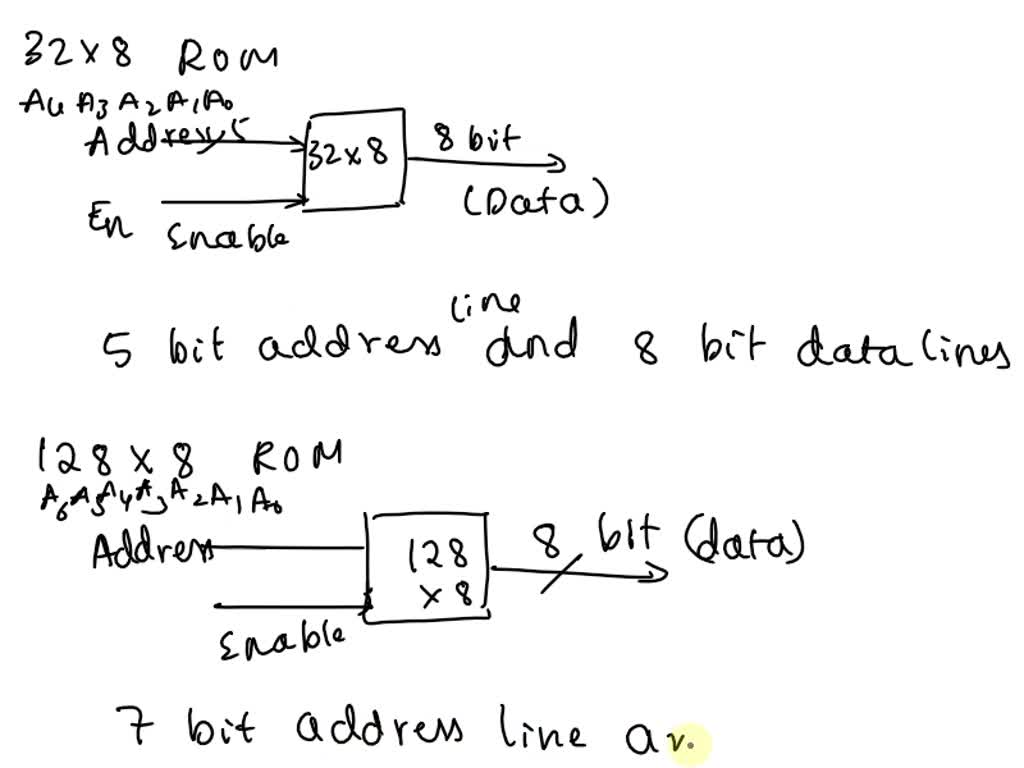 32 x 8 ROM
A4 A3 A2 A1 A0
Address 5
32 x 8
8 bit
(Data)
En
Enable
line
5 bit address and 8 bit data lines
128 x 8 ROM
A6 A5 A4 A3 A2 A1 A0
Address
128
x 8
8 bit (data)
Enable
7 bit address line